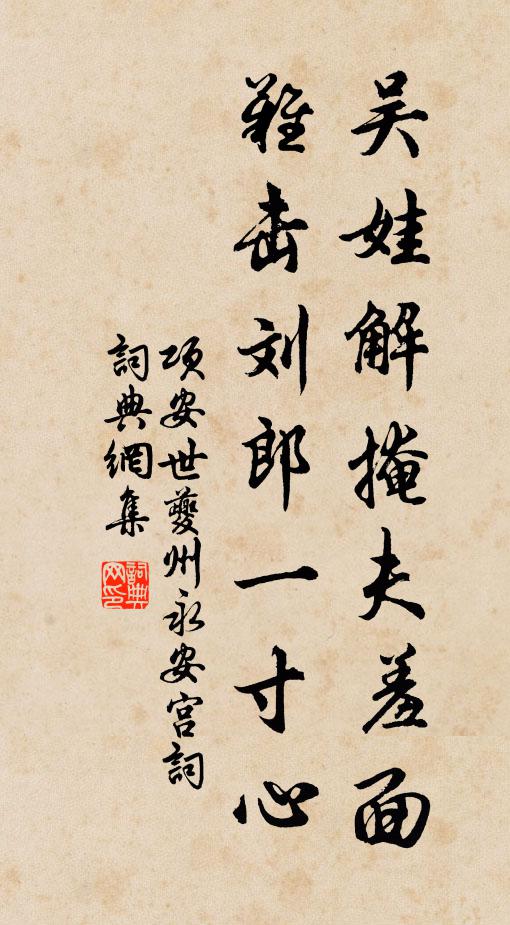 吴娃解掩夫差面
難击刘郎一寸心
项安世夔州永安宫詞
詞典網集
詞典网印